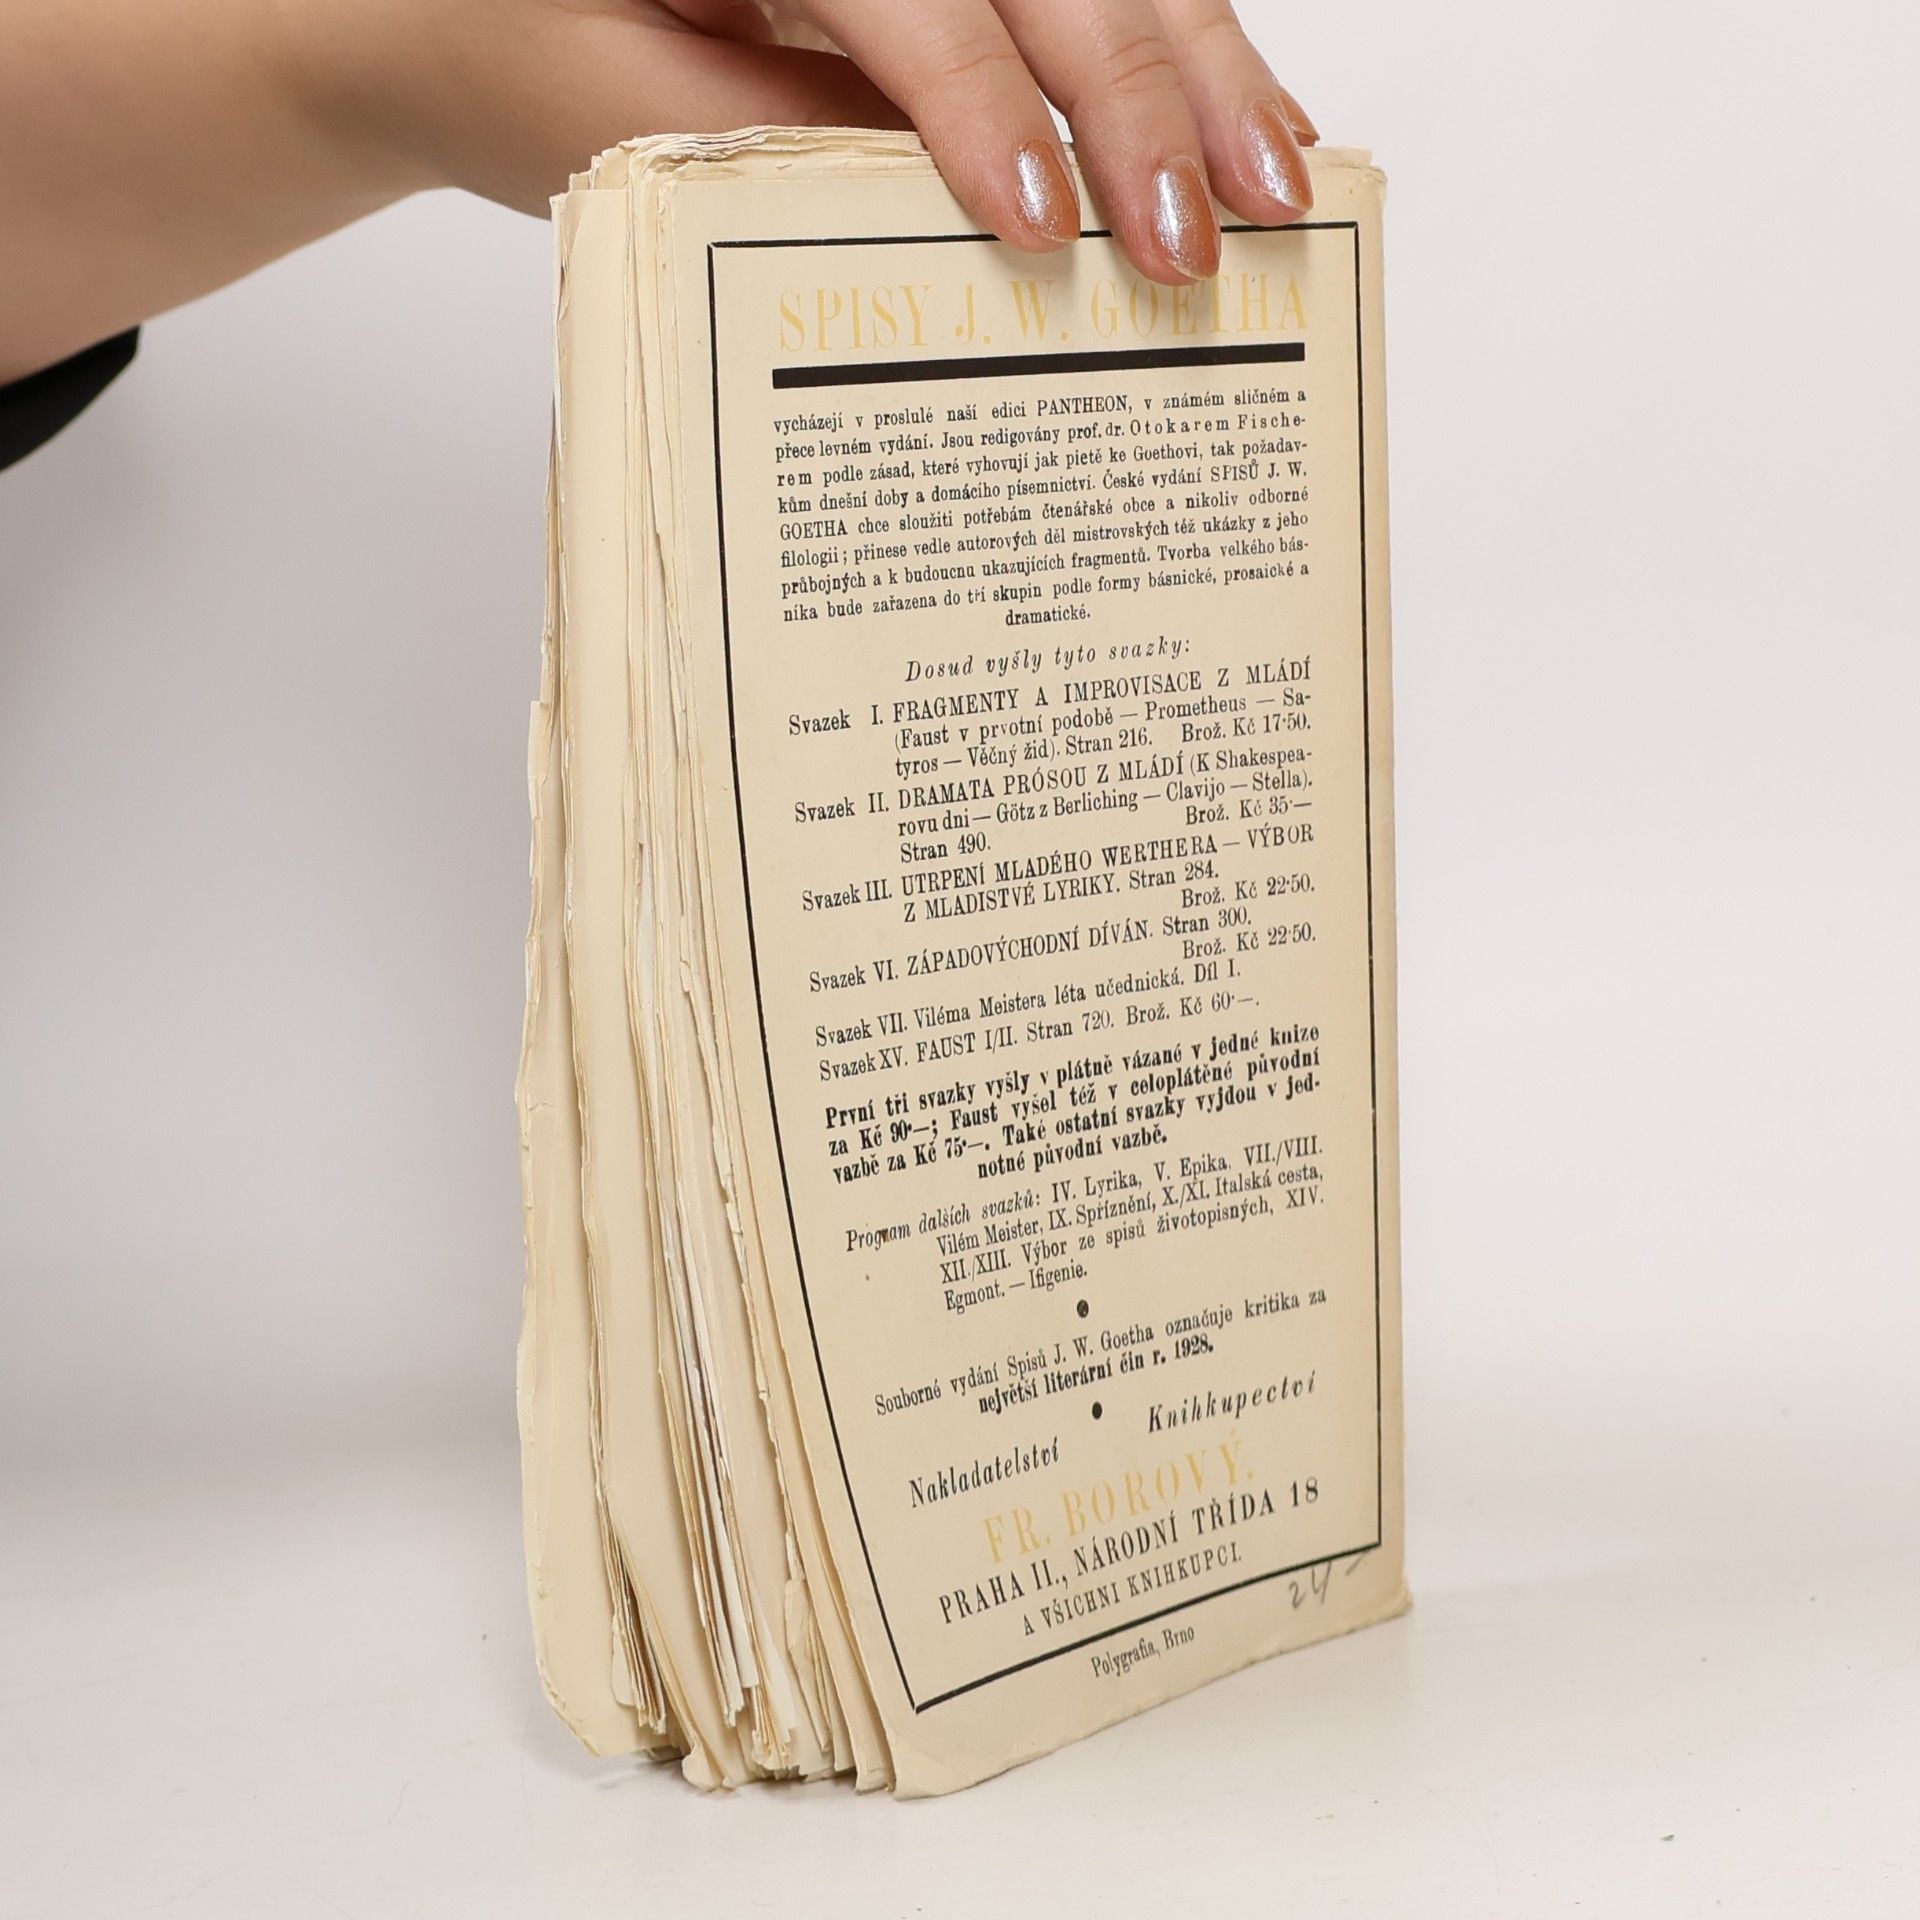 SPISY J. W. GOETHA
vycházejí v proslulé naší edici PANTHEON, v známém sličném a
přece levném vydání. Jsou redigovány prof. dr. Otokarem Fische-
rem podle zásad, které vyhovují jak pietě ke Goethovi, tak požadav-
kům dnešní doby a domácího písemnictví. České vydání SPISŮ J. W.
GOETHA chce sloužiti potřebám čtenářské obce a nikoliv odborné
filologii; přinese vedle autorových děl mistrovských též ukázky z jeho
průbojných a k budoucnu ukazujících fragmentů. Tvorba velkého bás-
níka bude zařazena do tří skupin podle formy básnické, prosaické a
dramatické.
Dosud vyšly tyto svazky:
Svazek I. FRAGMENTY A IMPROVISACE Z MLÁDÍ
(Faust v prvotní podobě — Prometheus — Sa-
tyros — Věčný žid). Stran 216. Brož. Kč 17·50.
Svazek II. DRAMATA PRÓSOU Z MLÁDÍ (K Shakespea-
rovu dni — Götz z Berliching — Clavijo — Stella).
Stran 490. Brož. Kč 35·—
Svazek III. UTRPENÍ MLADÉHO WERTHERA — VÝBOR
Z MLADISTVÉ LYRIKY. Stran 284.
Brož. Kč 22·50.
Svazek VI. ZÁPADOVÝCHODNÍ DÍVÁN. Stran 300.
Brož. Kč 22·50.
Svazek VII. Viléma Meistera léta učednická. Díl I.
Svazek XV. FAUST I/II. Stran 720. Brož. Kč 60·—.
První tři svazky vyšly v plátně vázané v jedné knize
za Kč 90·—; Faust vyšel též v celoplátěné původní
vazbě za Kč 75·—. Také ostatní svazky vyjdou v jed-
notné původní vazbě.
Program dalších svazků: IV. Lyrika, V. Epika, VII./VIII.
Vilém Meister, IX. Spříznění, X./XI. Italská cesta,
XII./XIII. Výbor ze spisů životopisných, XIV.
Egmont. — Ifigenie.
Souborné vydání Spisů J. W. Goetha označuje kritika za
největší literární čin r. 1928.
Nakladatelství Knihkupectví
FR. BOROVÝ.
PRAHA II., NÁRODNÍ TŘÍDA 18
A VŠICHNI KNIHKUPCI.
24 —
Polygrafia, Brno